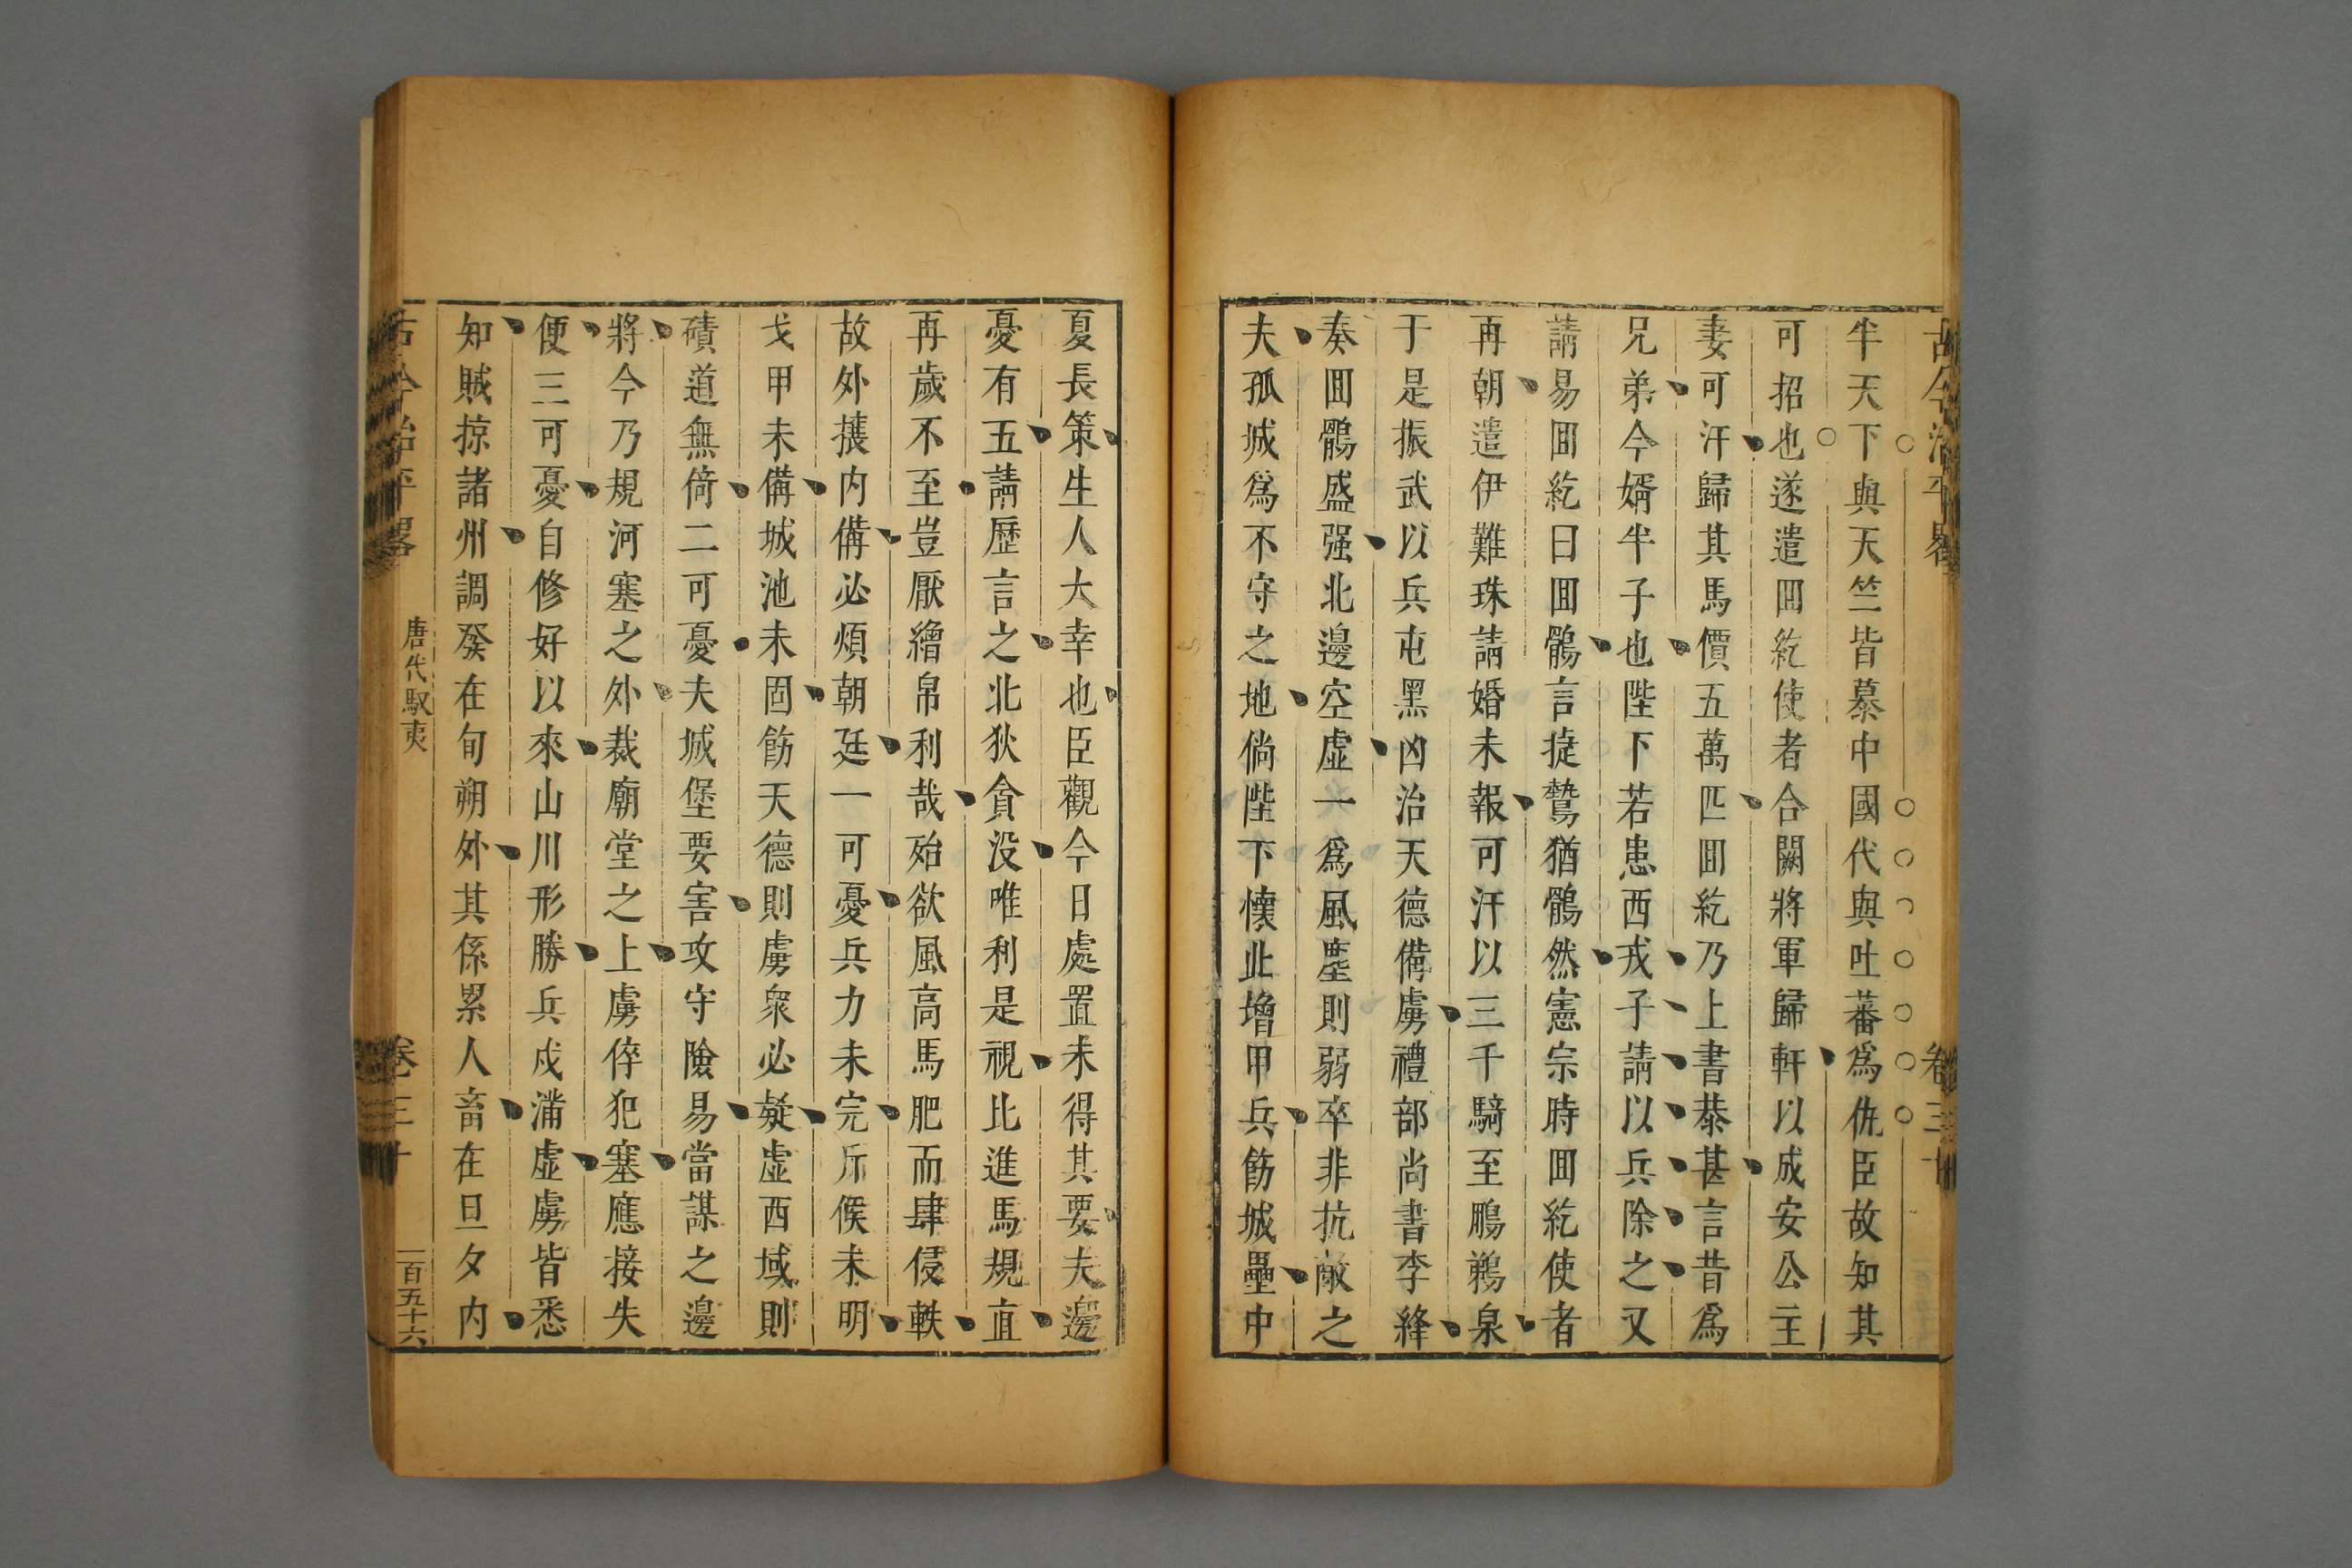 古今治平畧
卷三十
半天下與天竺皆慕中國代與吐蕃爲仇臣故知其
可招也遂遣囬紇使者合闕將軍歸軒以成安公主
妻可汗歸其馬價五萬匹囬紇乃上書恭甚言昔爲
兄弟今婿半子也陛下若患西戎子請以兵除之又
請易囬紇曰囬鶻言捷鷙猶鶻然憲宗時囬紇使者
再朝遣伊難珠請婚未報可汗以三千騎至鸊鵜泉
于是振武以兵屯黑凼治天德備虜禮部尚書李絳
奏囬鶻盛强北邊空虛一爲風塵則弱卒非抗敵之
夫孤城爲不守之地倘陛下懷此增甲兵飭城壘中
夏長策生人大幸也臣觀今日處置未得其要夫邊
憂有五請歷言之北狄貪没唯利是視比進馬規直
再歲不至豈厭繒帛利哉殆欲風高馬肥而肆侵軼
故外攘内備必煩朝廷一可憂兵力未完斥候未明
戈甲未備城池未固飭天德則虜衆必疑虛西域則
磧道無倚二可憂夫城堡要害攻守險易當謀之邊
將今乃規河塞之外裁廟堂之上虜倅犯塞應接失
便三可憂自修好以來山川形勝兵戍滿虛虜皆悉
知賊掠諸州調發在旬朔外其係累人畜在旦夕内
古今治平畧
唐代馭夷
卷三十
一百五十六